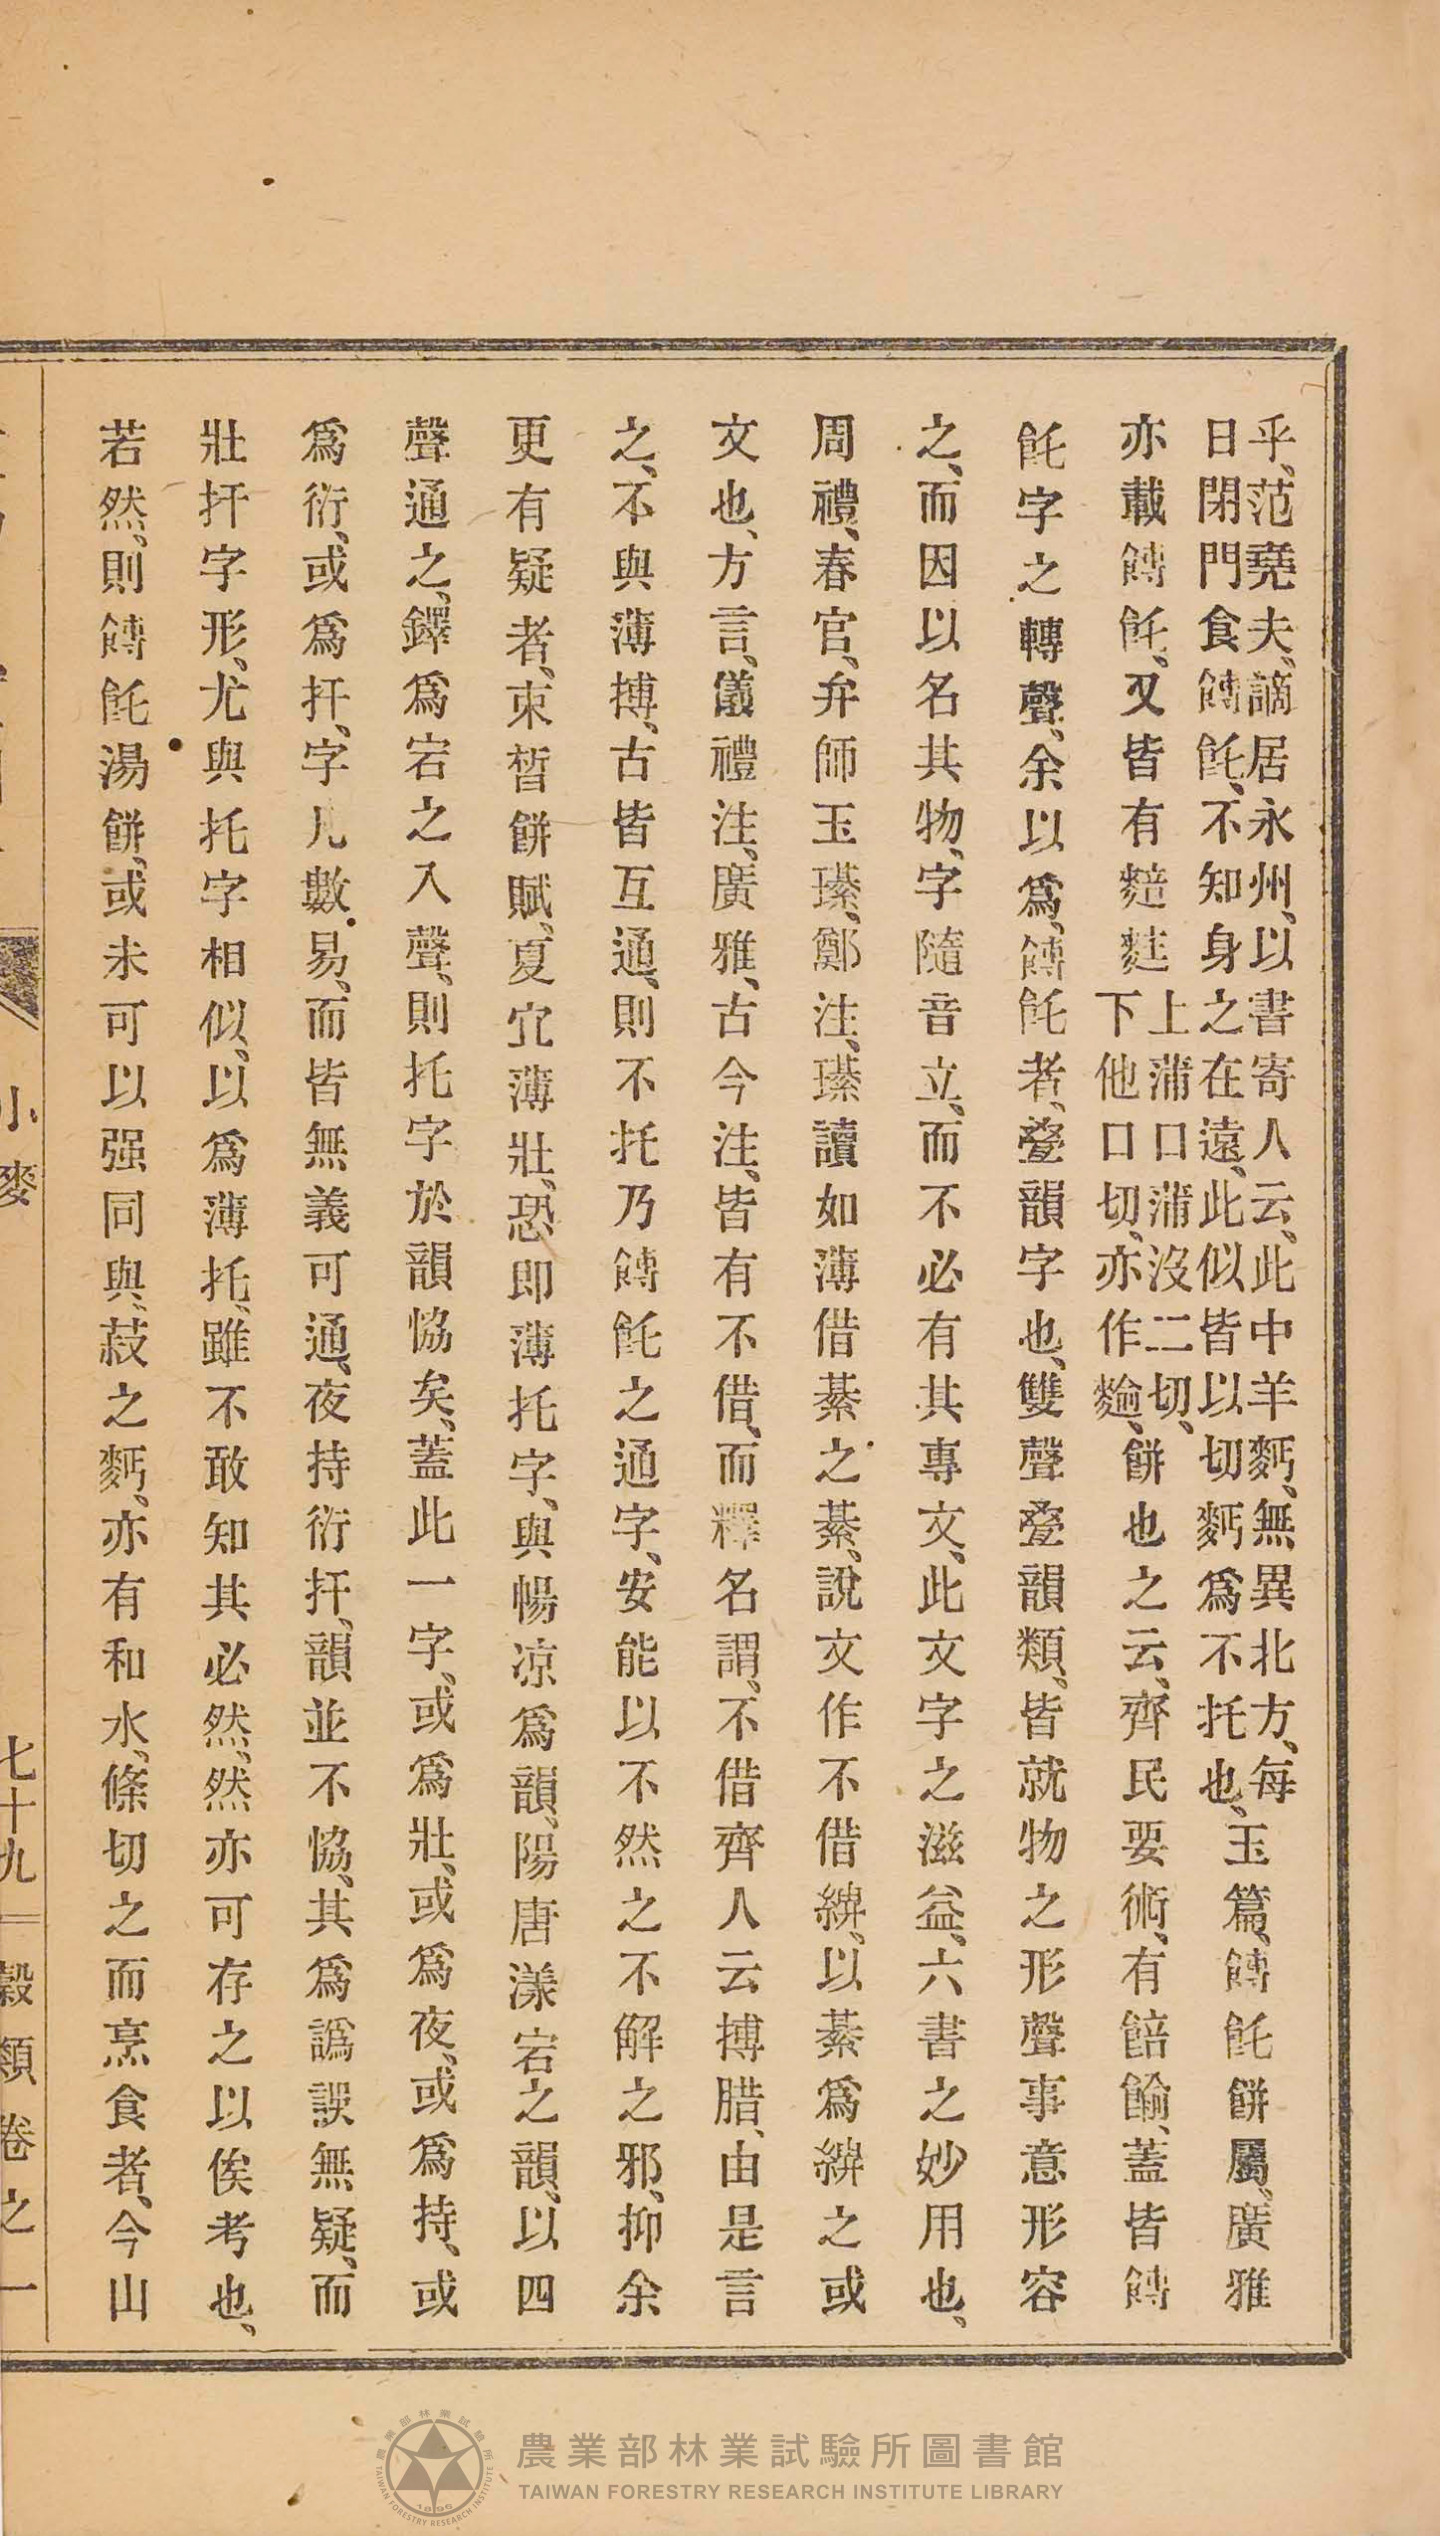 乎、范堯夫、謫居永州、以書寄人云、此中羊麪、無異北方、每
日閉門食餺飥、不知身之在遠、此似皆以切麪爲不托也、玉篇、餺飥餅屬、廣雅
亦載餺飥、又皆有䴺䴬
上蒲口蒲沒二切、
下他口切、亦作䴹、
餅也之云、齊民要術、有餢飳、蓋皆餺
飥字之轉聲、余以爲、餺飥者、疊韻字也、雙聲疊韻類、皆就物之形聲事意形容
之、而因以名其物、字隨音立、而不必有其專文、此文字之滋益、六書之妙用也、
周禮、春官、弁師玉璂、鄭注、璂讀如薄借綦之綦、說文作不借綼、以綦爲綼之或
文也、方言、儀禮注、廣雅、古今注、皆有不借、而釋名謂、不借齊人云搏腊、由是言
之、不與薄搏、古皆互通、則不托乃餺飥之通字、安能以不然之不解之邪、抑余
更有疑者、束晳餅賦、夏宜薄壯、恐即薄托字、與暢凉爲韻、陽唐漾宕之韻、以四
聲通之、鐸爲宕之入聲、則托字於韻恊矣、蓋此一字、或爲壯、或爲夜、或爲持、或
爲衍、或爲扞、字凡數易、而皆無義可通、夜持衍扞、韻並不恊、其爲譌誤無疑、而
壯扞字形、尤與托字相似、以爲薄托、雖不敢知其必然、然亦可存之以俟考也、
若然、則餺飥湯餅、或未可以强同與、菽之麪、亦有和水、條切之而烹食者、今山
小麥　七十九　穀類卷之一
農業部林業試驗所圖書館
TAIWAN FORESTRY RESEARCH INSTITUTE LIBRARY